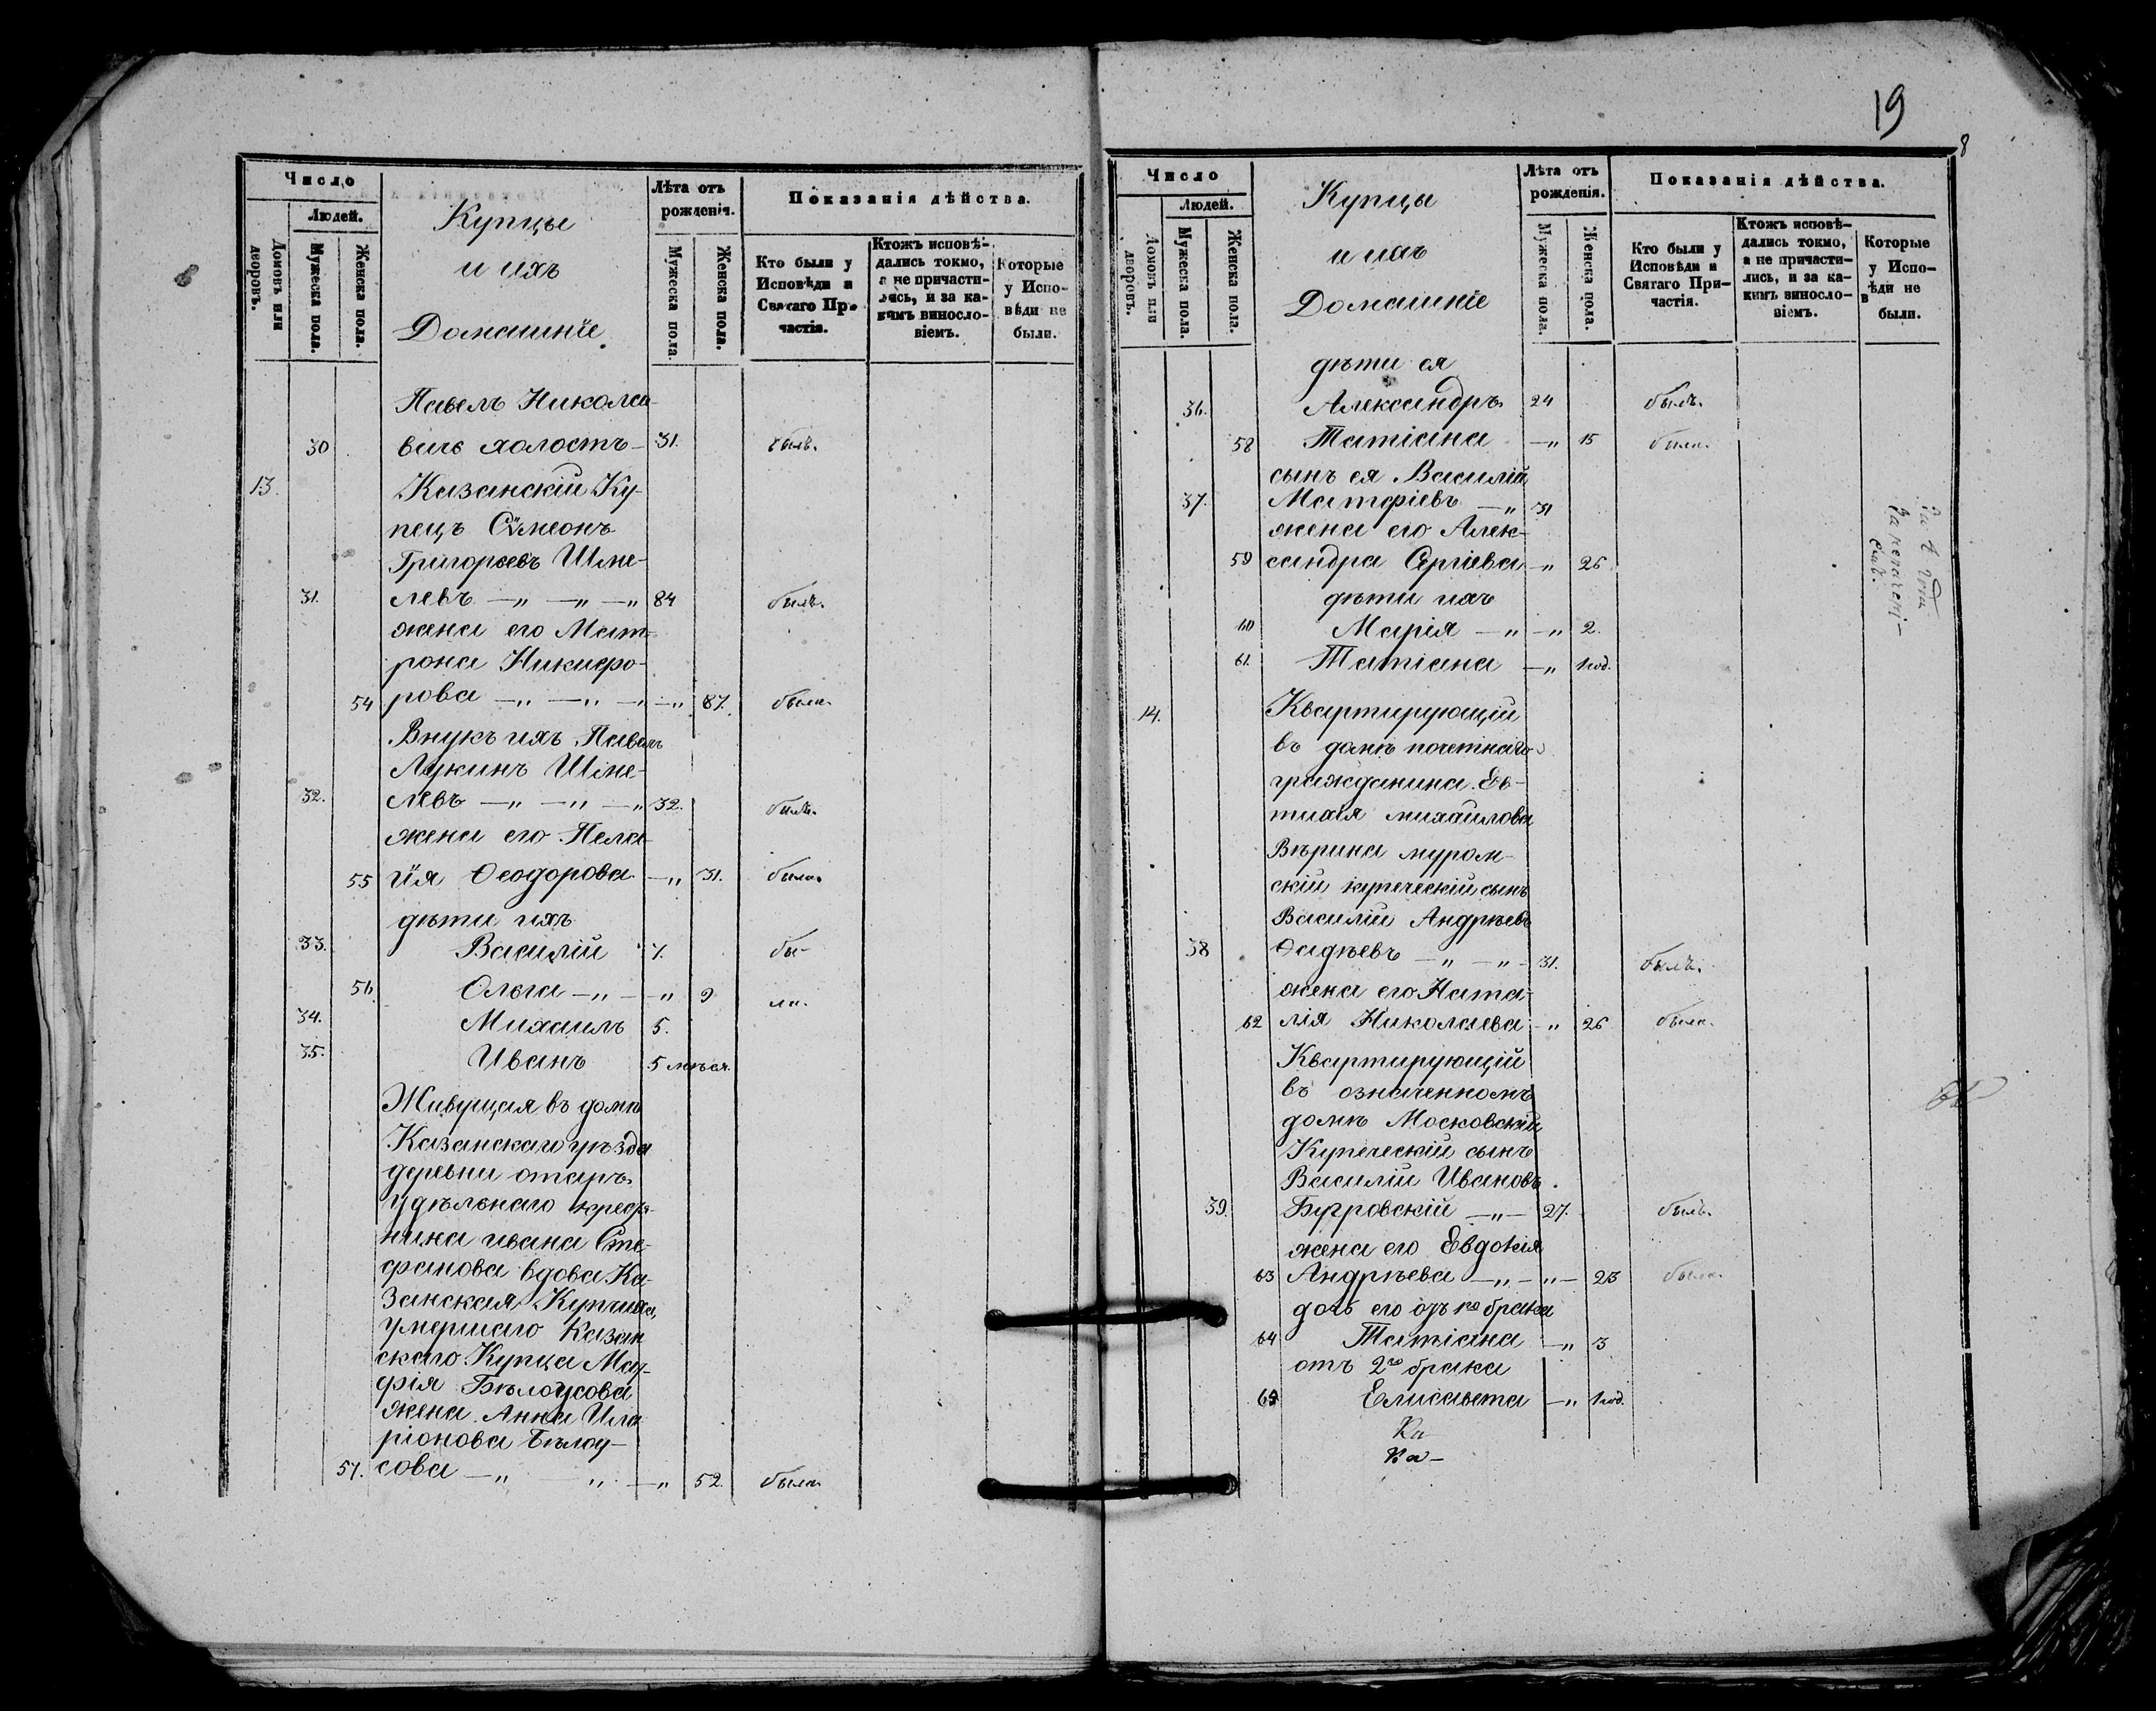 Число
Людей.
Домовъ или дворовъ.
Мужеска пола.
Женска пола.
Купцы
и ихъ
Домашніе
Лѣта отъ рожденія.
Мужеска пола.
Женска пола.
Показанія дѣйства.
Кто были у Исповѣди и Святаго Причастія.
Ктожъ исповѣдались токмо, а не причастились, и за какимъ винословіемъ.
Которые у Исповѣди не были.
Павелъ Никола-
30 вичь холостъ 31. былъ.
13. Казанскій Ку-
пецъ Сѵмеонъ
Григорьевъ Шме-
31. левъ —„ —„ —„ 84 былъ.
жена его Мат-
рона Никифо-
54 рова —„ —„ —„ —„ 87. была.
Внукъ ихъ Павелъ
Лукинъ Шме-
32. левъ —„ —„ —„ 32. былъ.
жена его Пела-
55 гія Ѳеодорова —„ 31. была.
дѣти ихъ
33. Василій 7. бы-
56. Ольга —„ —„ 9 ли.
34. Михаилъ 5.
35. Иванъ 5 мѣся.
Живущая въ домѣ
Казанскаго уѣзда
деревни отаръ
Удѣльнаго крестья-
нина ивана Сте-
фанова вдова Ка-
занская Купчиха,
умершаго Казан
скаго Купца Мат-
фія Бѣлоусова
жена Анна Ила
ріонова Бѣлоу-
57. сова —„ „ —„ 52. была
19
8
Число
Людей.
Домовъ или дворовъ.
Мужеска пола.
Женска пола.
Купцы
и ихъ
Домашніе
Лѣта отъ рожденія.
Мужеска пола.
Женска пола.
Показанія дѣйства.
Кто были у Исповѣди и Святаго Причастія.
Ктожъ исповѣдались токмо, а не причастились, и за какимъ винословіемъ.
Которые у Исповѣди не были.
дѣти ея
36. Александръ 24 былъ.
58 Татіана —„ 15 была.
сынъ ея Василій
37. Матфіевъ —„ 31
жена его Алек-
59 сандра Сергіева —„ 26
дѣти ихъ
60 Марія —„ —„ 2.
61. Татіана —„ 1 год.
14. Квартирующій
въ домѣ почетнаго
гражданина Ев-
тихія михайлова
Вѣрина муром-
скій купеческій сынъ
Василій Андрѣевъ
38 Ѳадѣевъ —„ —„ 31. былъ.
жена его Ната-
62 лія Николаева —„ 26 была.
Квартирующій
въ означенномъ
домѣ Московскій
Купеческій сынъ
Василій Ивановъ
39. Бугровскій —„— 27. былъ.
жена его Евдокія
63 Андрѣева —„— „— 23 была.
дочь его отъ 1го брака
64 Татіана —„ 3
отъ 2го брака
65 Елисавета —„ 1 год.
Ка
Ка-